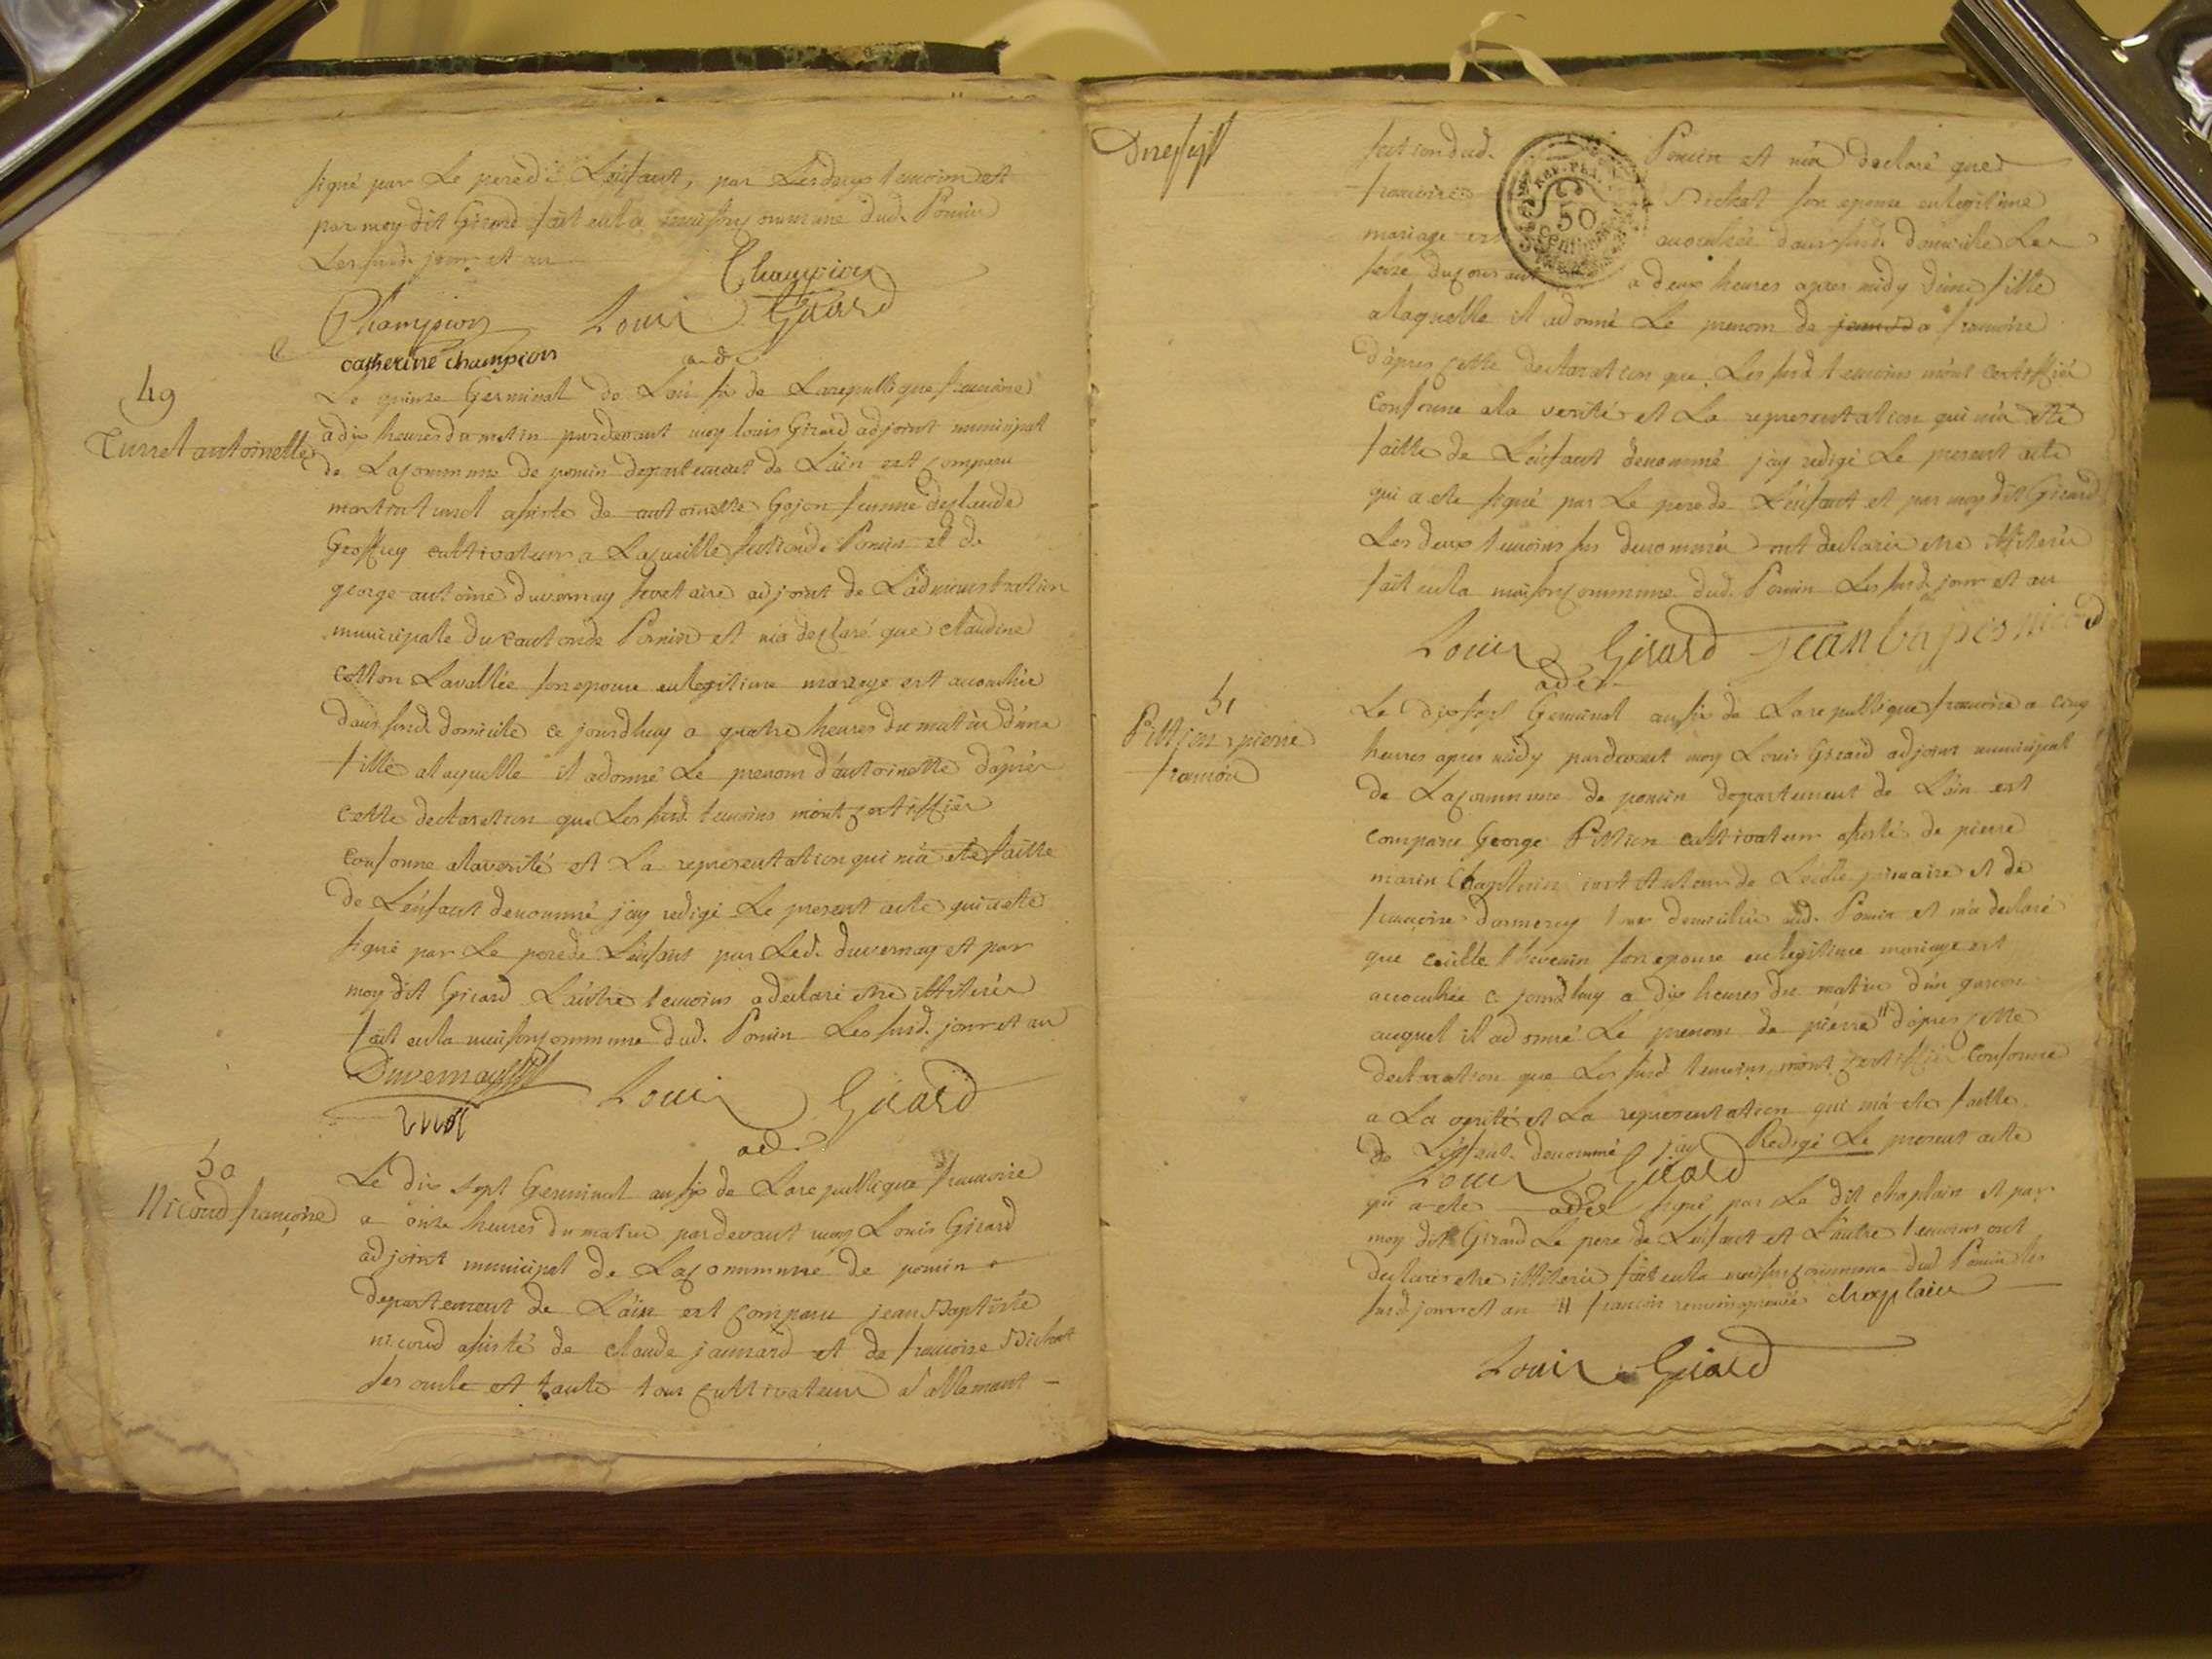 signé par Le pere de L'enfant, par Les deux temoins et
par moy dit Girard fait en la maison commune dud. Poncin
Les susd. jour et an
Champion
Champion Louis Girard
catherine champion adj.
49
Turret antoinette
Le quinze Germinal de L'an six de La republique francoise
a dix heures du matin pardevant moy louis Girard adjoint municipal
de La commune de poncin departement de L'ain est comparu
turret assisté de antoinette Gojon femme de claude
Geoffray cultivateur a La section de Poncin et de
george antoine duvernay secretaire adjoint de L'administration
municipale du canton de Poncin et m'a declaré que claudine
cotton Lavallée son epouse en legitime mariage est accouchée
dans susd. domicile ce jourdhuy a quatre heures du matin d'une
fille a laquelle il a donné Le prenom d'antoinette d'après
cette declaration que Les susd. temoins m'ont certiffiée
conforme a la verité et La representation qui m'a eté faitte
de L'enfant denommé j'ay redigé Le present acte qui a eté
signé par Le pere de L'enfant par Led. duvernay et par
moy dit Girard L'autre temoins a declaré etre illiterée
fait en la maison commune dud. Poncin Les susd. jour et an
Duvernay Louis Girard
adj.
50
Nicoud françoise
Le dix sept Germinal an six de La republique francoise
a onze heures du matin pardevant moy Louis Girard
adjoint municipal de La commune de poncin
departement de L'ain est comparu jean Baptiste
nicoud assisté de claude jannard et de francoise Bichat
ses oncle et tante tous cultivateurs a allement
section dud. Poncin et m'a declaré que
francoise Bichat son epouse en legitime
mariage est accouchée dans susd. domicile Le
seize du courant a deux heures apres midy d'une fille
a laquelle il a donné Le prenom de francoise
d'apres cette declaration que Les susd. temoins m'ont certiffiée
conforme a la verité et La representation qui m'a eté
faitte de L'enfant denommé j'ay redigé Le present acte
qui a eté signé par Le pere de L'enfant et par moy dit Girard
Les deux temoins sus denommés ont declarés etre illiterés
fait en la maison commune dud. Poncin Les susd. jour et an
Louis Girard jean nicod
adj.
REP. FRA.
50
centimes
51
Pittion pierre
francois
Le dix sept Germinal an six de La republique francoise a cinq
heures apres midy pardevant moy Louis Girard adjoint municipal
de La commune de poncin departement de L'ain est
comparu George Pittion cultivateur assisté de pierre
marin Chaplain instituteur de L'ecole primaire et de
françoise tous domiciliés aud. Poncin et m'a declaré
que thevenin son epouse en legitime mariage est
accouchée ce jourdhuy a dix heures du matin d'un garcon
auquel il a donné Le prenom de pierre " d'apres cette
declaration que Les susd. temoins m'ont certiffiée Conforme
a La verité et La representation qui m'a eté faitte
de L'enfant denommé j'ay Redigé Le present acte
Louis Girard
qui a eté adj. signé par Le dit chaplain et par
moy dit Girard Le pere de L'enfant et L'autre temoins ont
declarés etre illiterés fait en la maison commune dud Poncin les
susd. jour et an " francois chaplain
Louis Girard